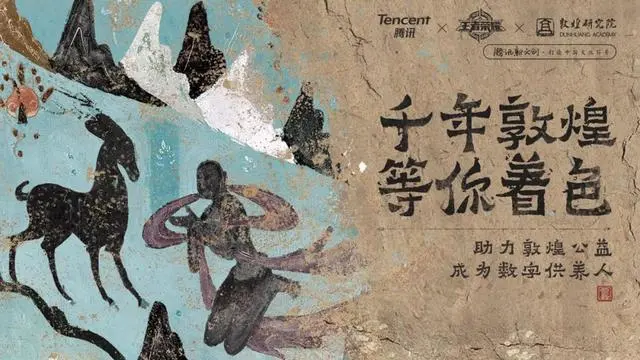 Tencent 腾讯 × 王者荣耀 × 敦煌研究院 DUNHUANG ACADEMY
腾讯新文创·打造中国文化符号
千年敦煌
等你着色
助力敦煌公益
成为数字供养人